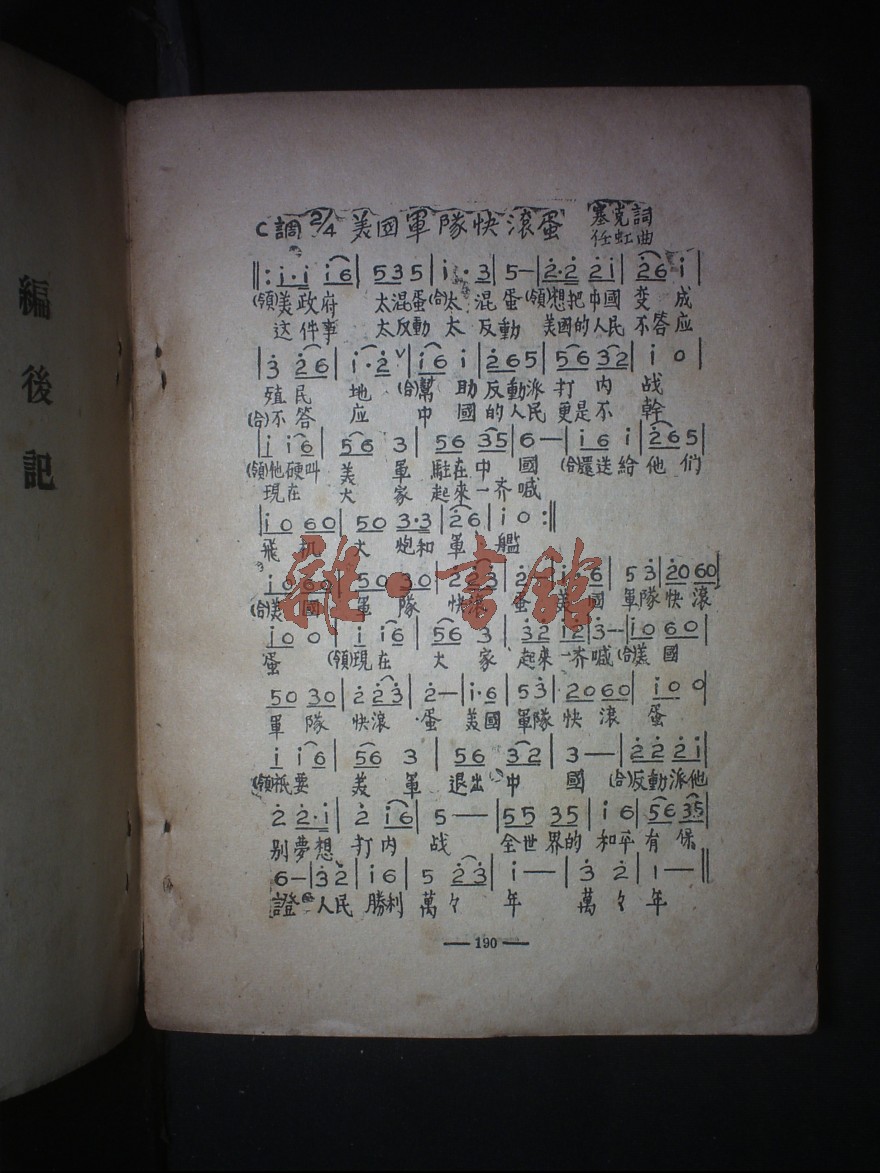 編後記
C調 2/4 美国軍隊快滾蛋 塞克詞
任虹曲
‖: i·i i6 | 535 | i·3 | 5— | 2·2 2i | 26 i |
(領)美政府 太混蛋 (合)太混蛋 (領)想把中國变成
这件事 太反動 太反動 美國的人民不答应
| 3 26 | i·2 ∨ | i6 i | 265 | 56 32 | i 0 |
殖民地 (合)幫助反動派打内战
(合)不答应 中國的人民更是不幹
| i i6 | 56 3 | 56 35 | 6— | i6 i | 265 |
(領)他硬叫美軍駐在中國 (合)還送給他们
現在大家起來一齐喊
| i0 60 | 50 3·3 | 26 | i 0 :‖
飛机大炮和軍艦
i0 60 | 50 30 | 2 23 | 2— | i·6 | 5 3 | 20 60 |
(合)美國軍隊快滾蛋 美國軍隊快滾
i0 0 | i i6 | 56 3 | 32 i2 | 3— | i0 60 |
蛋 (領)現在大家起來一齐喊 (合)美國
50 30 | 2 23 | 2— | i·6 | 5 3 | 20 60 | i0 0 |
軍隊快滾蛋 美國軍隊快滾蛋
i i6 | 56 3 | 56 32 | 3— | 22 2i |
(領)祇要美軍退出中國 (合)反動派他
2 2·i | 2 i6 | 5— | 55 35 | i 6 | 56 35 |
别夢想打内战 全世界的和平有保
6— | 32 | i6 | 5 23 | i— | 3 2 | 1— ‖
證 人民勝利萬々年 萬々年
— 190 —
雜·書館